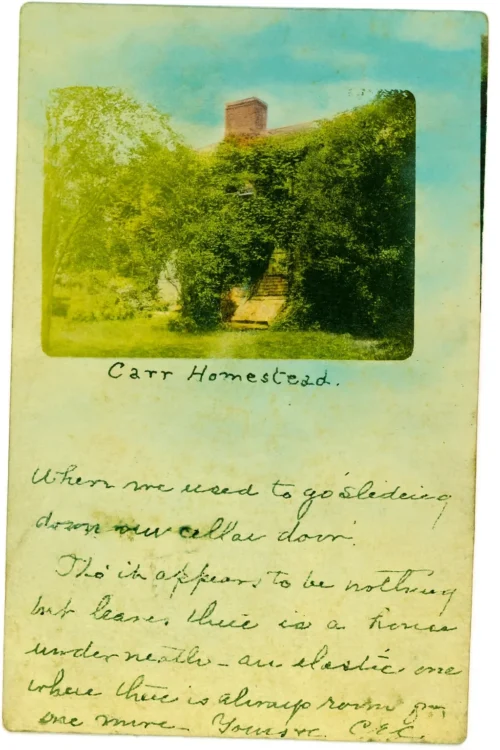 Carr Homestead.
When we used to go sledeing
down our cellar door.
Tho' it appears to be nothing
but leaves there is a house
underneath - an elastic one
where there is always room for
one more - Yours &c. C.E.C.